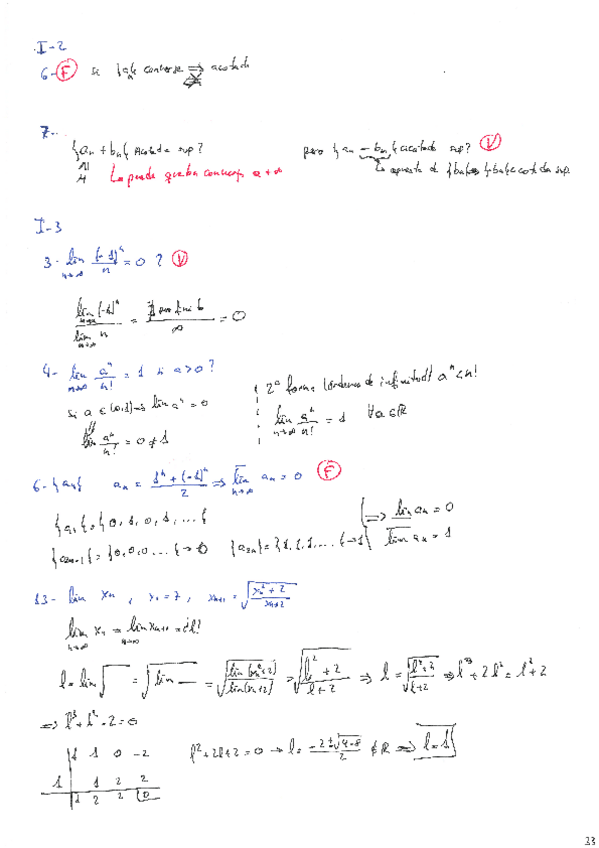 I-2
6- F si {an} converge ⇒ acotada
7-
{an + bn} acotada sup? pero {an - bn} acotada sup? V
Lo puede que bn converja a + ∞ Lo opuesto de {bn} {bn} acotada sup.
I-3
3- lim n→∞ (-1)^n / n = 0 ? V
lim (-1)^n / lim n = / ∞ = 0
4- lim n→∞ a^n / n! = 1 si a>0?
si a ∈ (0,1) ⇒ lim a^n = 0
lim a^n / n! = 0 ≠ 1
2ª forma (órdenes de infinitud) a^n < n!
lim n→∞ a^n / n! = 1 ∀a∈ℝ
6- {an} an = (1^n + (-1)^n) / 2 ⇒ lim n→∞ an = 0 F
{an} = {0, 1, 0, 1, ... {
{a2n-1} = {0, 0, 0 ... { → 0 {a2n} = {1, 1, 1, ... { → 1
⇒ lim an = 0
lim an = 1
13- lim xn , x1 = 7, xn+1 = √((xn² + 2) / (xn + 2))
lim n→∞ xn = lim n→∞ xn+1 = ¿l?
l = lim √ = √lim = √(lim (xn² + 2) / lim (xn + 2)) = √((l² + 2) / (l + 2)) ⇒ l = √(l² + 2) / √(l + 2) ⇒ l³ + 2l² = l² + 2
⇒ l³ + l² - 2 = 0
1 1 0 -2
1 1 2 2
1 2 2 0
l² + 2l + 2 = 0 → l = (-2 ± √(4 - 8)) / 2 ∉ ℝ ⇒ l = 1
33